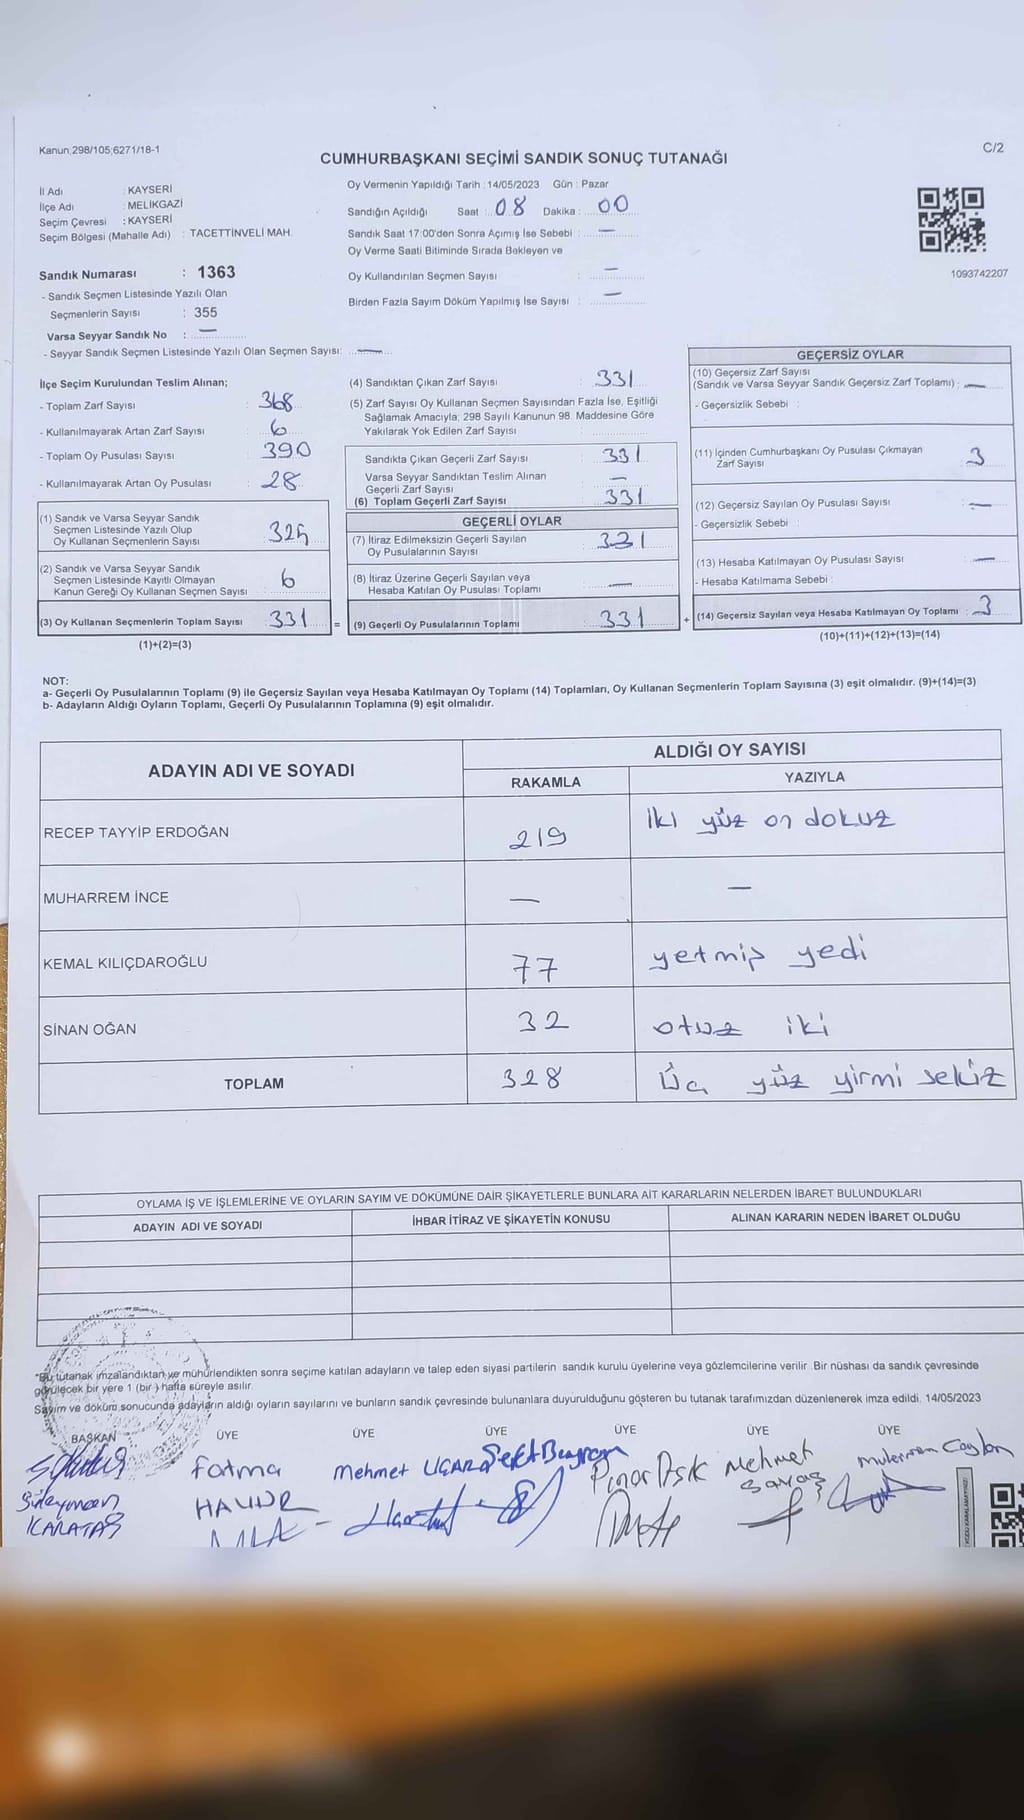 Kanun;298/105;6271/18-1
C/2
CUMHURBAŞKANI SEÇİMİ SANDIK SONUÇ TUTANAĞI
İl Adı : KAYSERİ
İlçe Adı : MELİKGAZİ
Seçim Çevresi : KAYSERİ
Seçim Bölgesi (Mahalle Adı) : TACETTİNVELİ MAH.
Sandık Numarası : 1363
- Sandık Seçmen Listesinde Yazılı Olan
Seçmenlerin Sayısı : 355
Varsa Seyyar Sandık No : —
- Seyyar Sandık Seçmen Listesinde Yazılı Olan Seçmen Sayısı: —
Oy Vermenin Yapıldığı Tarih : 14/05/2023 Gün : Pazar
Sandığın Açıldığı Saat : 08 Dakika : 00
Sandık Saat 17:00'den Sonra Açımış İse Sebebi : —
Oy Verme Saati Bitiminde Sırada Bekleyen ve
Oy Kullandırılan Seçmen Sayısı : —
Birden Fazla Sayım Döküm Yapılmış İse Sayısı : —
1093742207
İlçe Seçim Kurulundan Teslim Alınan;
- Toplam Zarf Sayısı : 368
- Kullanılmayarak Artan Zarf Sayısı : 6
- Toplam Oy Pusulası Sayısı : 390
- Kullanılmayarak Artan Oy Pusulası : 28
(1) Sandık ve Varsa Seyyar Sandık
Seçmen Listesinde Yazılı Olup
Oy Kullanan Seçmenlerin Sayısı 325
(2) Sandık ve Varsa Seyyar Sandık
Seçmen Listesinde Kayıtlı Olmayan
Kanun Gereği Oy Kullanan Seçmen Sayısı 6
(3) Oy Kullanan Seçmenlerin Toplam Sayısı 331 =
(1)+(2)=(3)
(4) Sandıktan Çıkan Zarf Sayısı : 331
(5) Zarf Sayısı Oy Kullanan Seçmen Sayısından Fazla İse, Eşitliği
Sağlamak Amacıyla; 298 Sayılı Kanunun 98. Maddesine Göre
Yakılarak Yok Edilen Zarf Sayısı :
Sandıkta Çıkan Geçerli Zarf Sayısı : 331
Varsa Seyyar Sandıktan Teslim Alınan
Geçerli Zarf Sayısı : —
(6) Toplam Geçerli Zarf Sayısı : 331
GEÇERLİ OYLAR
(7) İtiraz Edilmeksizin Geçerli Sayılan
Oy Pusulalarının Sayısı : 331
(8) İtiraz Üzerine Geçerli Sayılan veya
Hesaba Katılan Oy Pusulası Toplamı : —
(9) Geçerli Oy Pusulalarının Toplamı 331 +
GEÇERSİZ OYLAR
(10) Geçersiz Zarf Sayısı
(Sandık ve Varsa Seyyar Sandık Geçersiz Zarf Toplamı) : —
- Geçersizlik Sebebi :
(11) İçinden Cumhurbaşkanı Oy Pusulası Çıkmayan
Zarf Sayısı : 3
(12) Geçersiz Sayılan Oy Pusulası Sayısı : —
- Geçersizlik Sebebi :
(13) Hesaba Katılmayan Oy Pusulası Sayısı : —
- Hesaba Katılmama Sebebi :
(14) Geçersiz Sayılan veya Hesaba Katılmayan Oy Toplamı : 3
(10)+(11)+(12)+(13)=(14)
NOT:
a- Geçerli Oy Pusulalarının Toplamı (9) ile Geçersiz Sayılan veya Hesaba Katılmayan Oy Toplamı (14) Toplamları, Oy Kullanan Seçmenlerin Toplam Sayısına (3) eşit olmalıdır. (9)+(14)=(3)
b- Adayların Aldığı Oyların Toplamı, Geçerli Oy Pusulalarının Toplamına (9) eşit olmalıdır.
ADAYIN ADI VE SOYADI
ALDIĞI OY SAYISI
RAKAMLA YAZIYLA
RECEP TAYYİP ERDOĞAN 219 iki yüz on dokuz
MUHARREM İNCE — —
KEMAL KILIÇDAROĞLU 77 yetmiş yedi
SİNAN OĞAN 32 otuz iki
TOPLAM 328 Üç yüz yirmi sekiz
OYLAMA İŞ VE İŞLEMLERİNE VE OYLARIN SAYIM VE DÖKÜMÜNE DAİR ŞİKAYETLERLE BUNLARA AİT KARARLARIN NELERDEN İBARET BULUNDUKLARI
ADAYIN ADI VE SOYADI İHBAR İTİRAZ VE ŞİKAYETİN KONUSU ALINAN KARARIN NEDEN İBARET OLDUĞU
*Bu tutanak imzalandıktan ve mühürlendikten sonra seçime katılan adayların ve talep eden siyasi partilerin sandık kurulu üyelerine veya gözlemcilerine verilir. Bir nüshası da sandık çevresinde
görülecek bir yere 1 (bir) hafta süreyle asılır.
Sayım ve döküm sonucunda adayların aldığı oyların sayılarını ve bunların sandık çevresinde bulunanlara duyurulduğunu gösteren bu tutanak tarafımızdan düzenlenerek imza edildi. 14/05/2023
BAŞKAN ÜYE ÜYE ÜYE ÜYE ÜYE ÜYE
Süleyman KARATAŞ
Fatma
Mehmet UÇAR
Sefet Bayram
Pınar Aşık
Mehmet Savaş